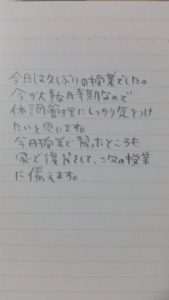 今日は久しぶりの授業でした。
今が大事な時期なので
体調管理にしっかり気をつけ
たいと思います。
今日授業で習ったところを
家で復習をして、次の授業
に備えます。